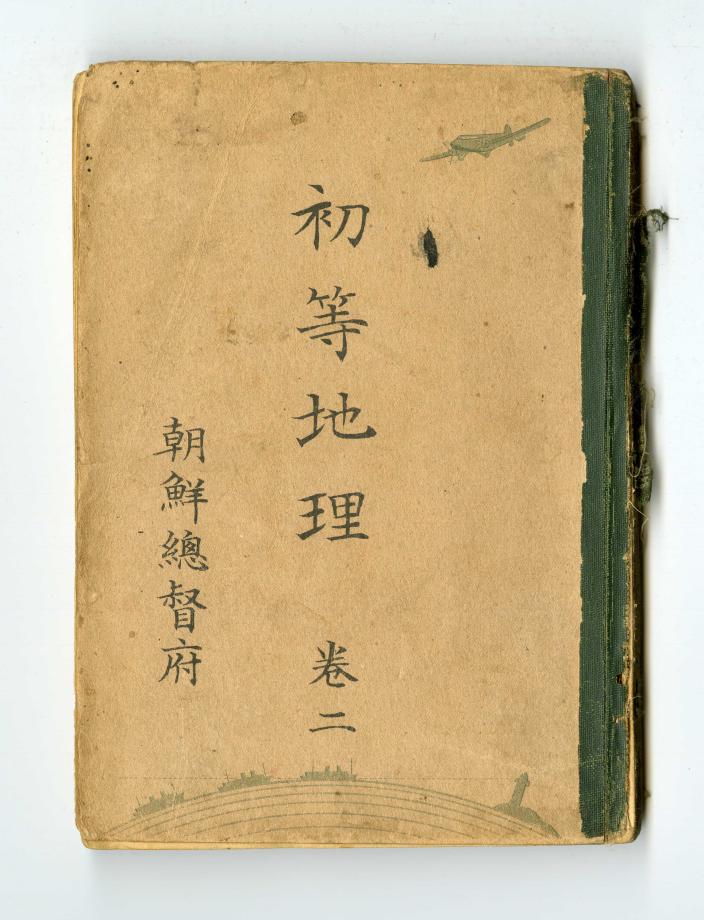 初等地理 卷二
朝鮮總督府